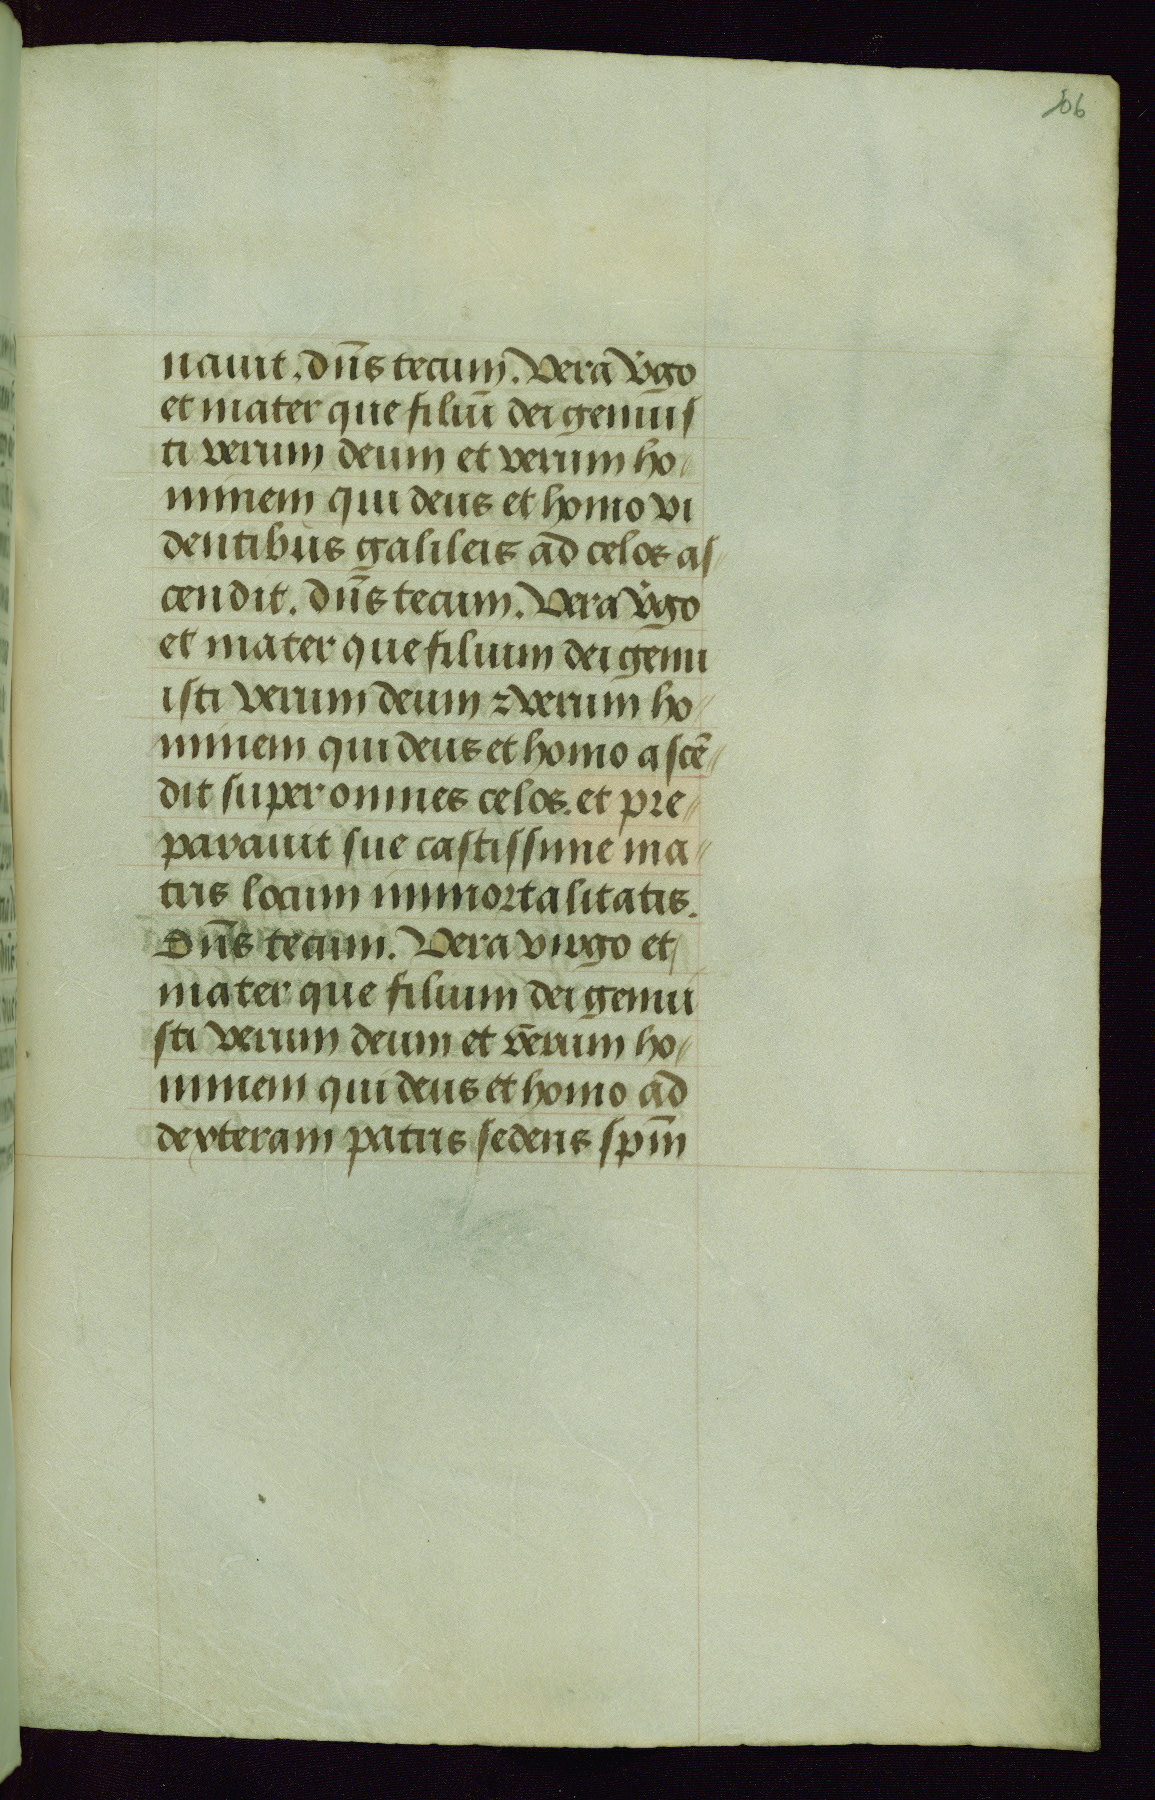 106
nauit. dn̄s tecum. Vera v̇go
et mater que filiū dei genuis
ti verum deum et verum ho
minem qui deus et homo vi
dentibus galileis ad celos as
cendit. dn̄s tecum. Vera v̇go
et mater que filium dei genu
isti verum deum ⁊ verum ho
minem qui deus et homo ascē
dit super omnes celos. et pre
parauit sue castissime ma
tris locum immortalitatis.
Dn̄s tecum. Vera virgo et
mater que filium dei genui
sti verum deum et verum ho
minem qui deus et homo ad
dexteram patris sedens spm̄